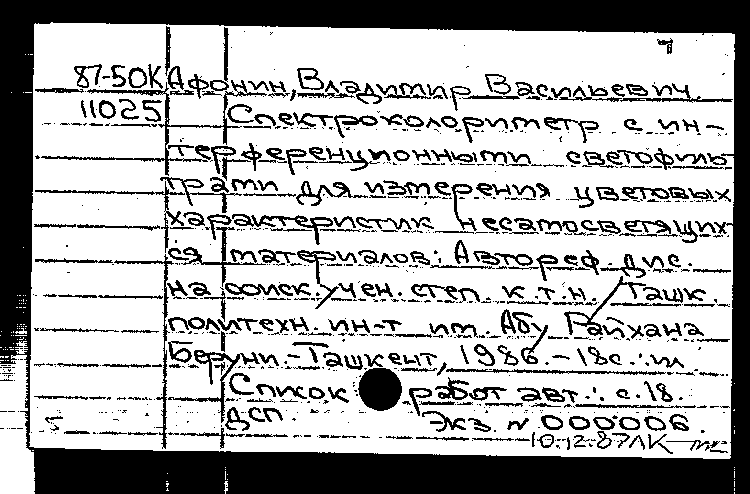 87-50К Афонин, Владимир Васильевич.
11025 Спектроколориметр с ин-
терференционными светофиль
трами для измерения цветовых
характеристик несамосветящих
ся материалов: Автореф. дис.
на соиск. учен. степ. к.т.н. / Ташк.
политехн. ин-т им. Абу Райхана
Беруни. - Ташкент, 1986. - 18с.: ил
Список работ авт.: с. 18.
ДСП. Экз. № 000006.
10.12.87ЛК